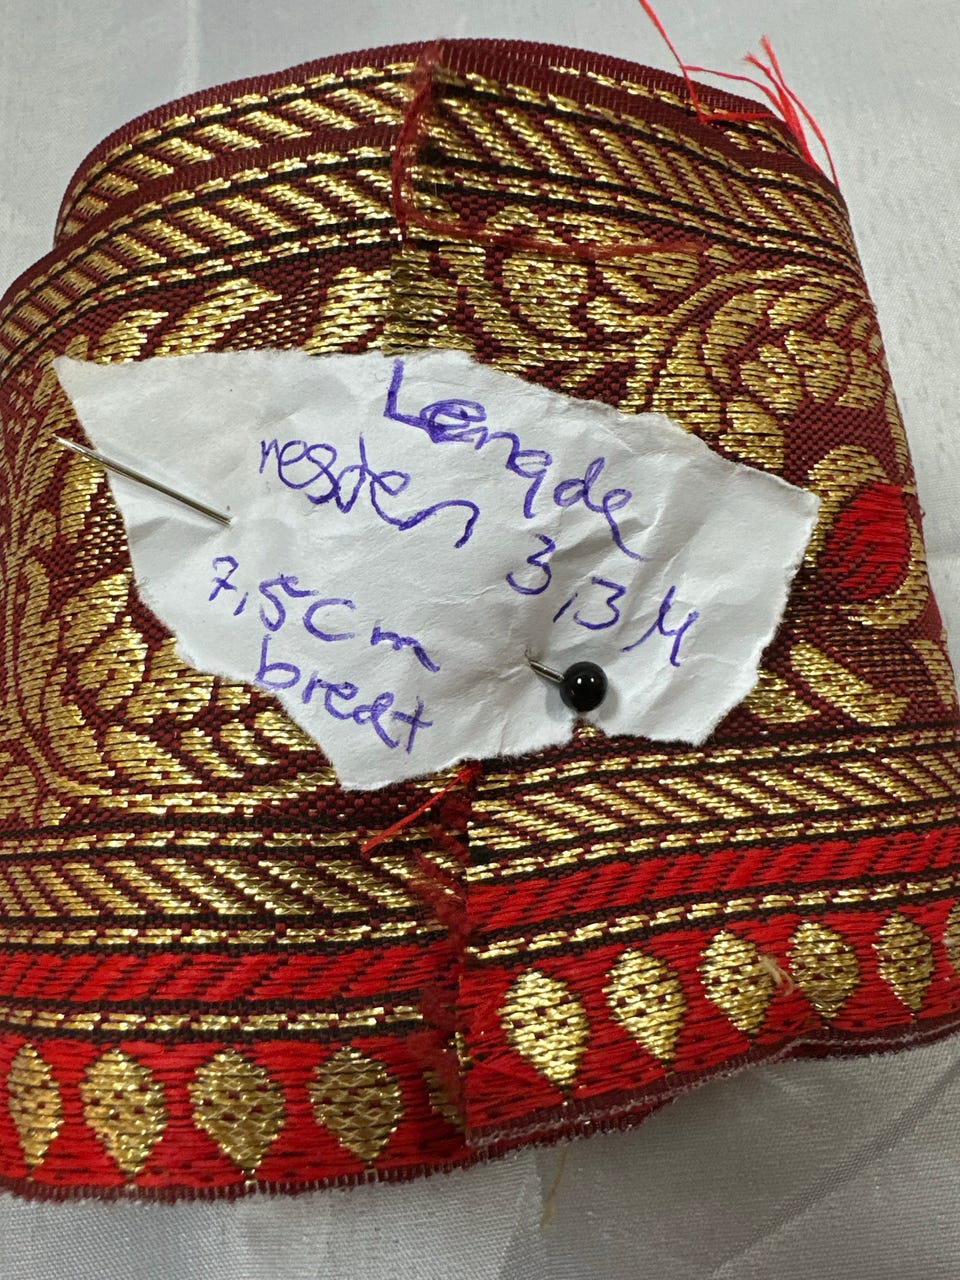 Lengde
resten 3,3 M
7,5 Cm
breat